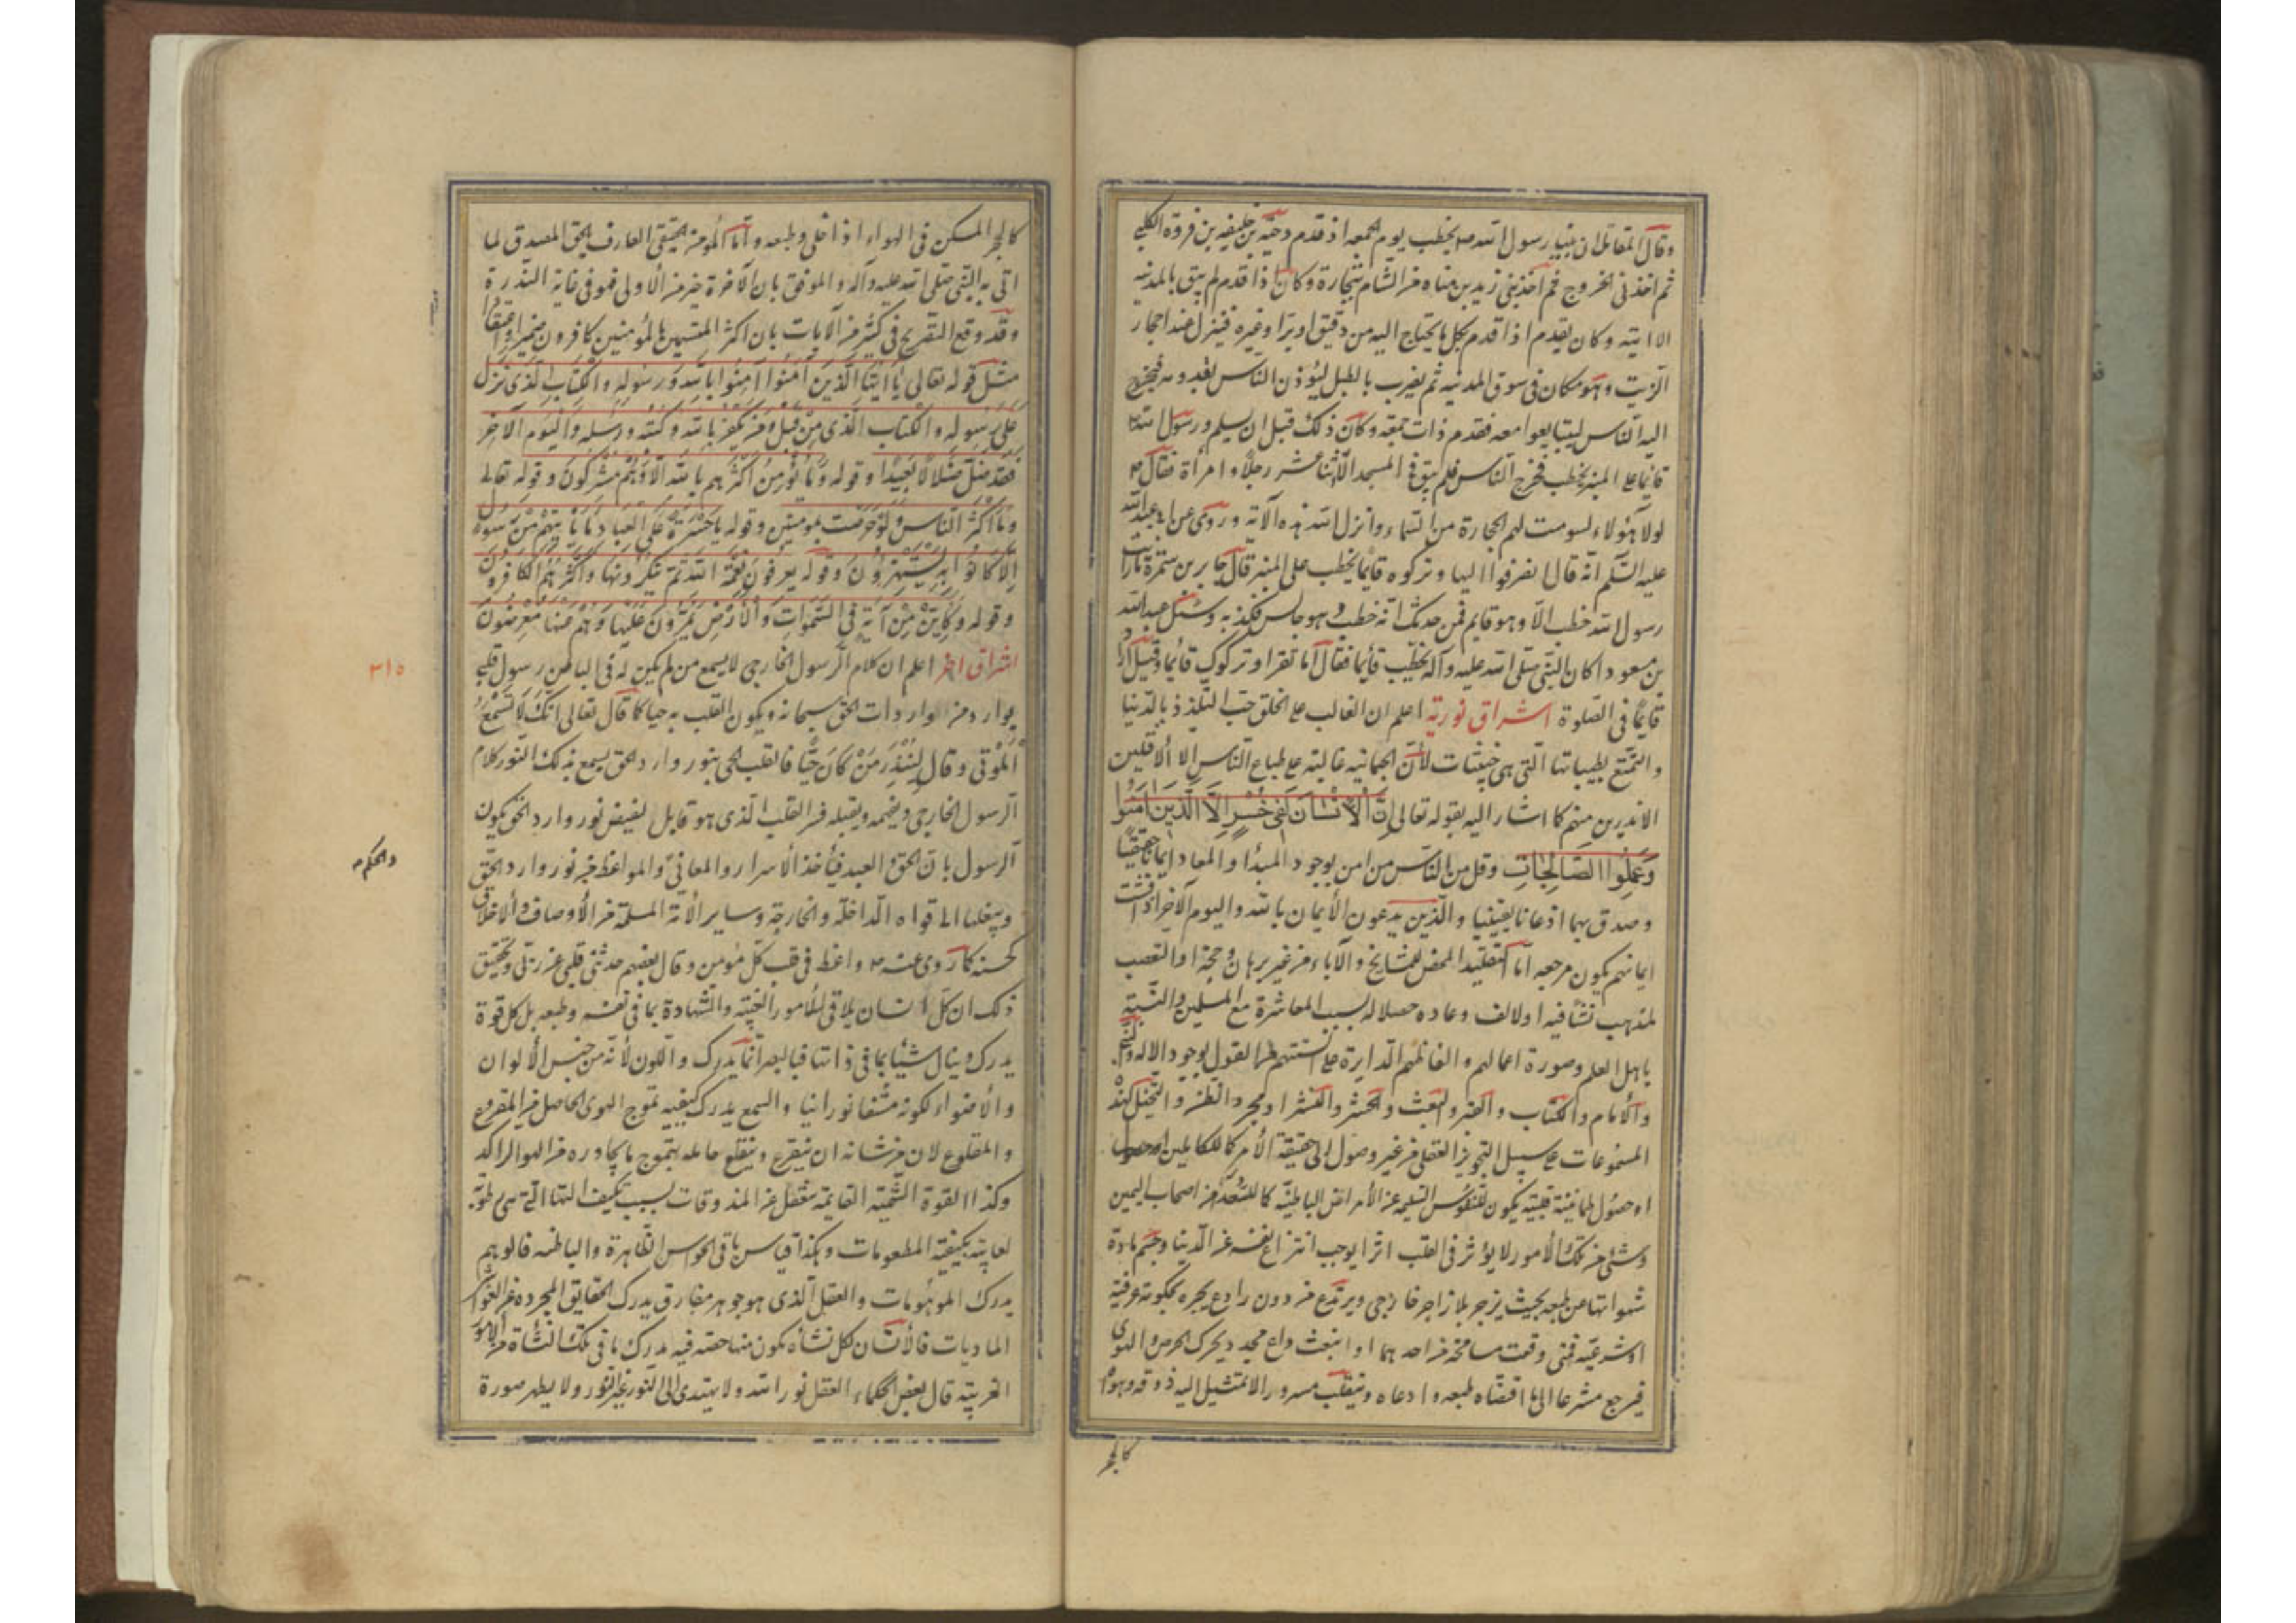 وقال المقاتلان بنيا رسول الله ص يخطب يوم الجمعه اذ قدم دحية بن خليفه بن فروة الكلبي
ثم اخذ في الخروج ثم احد بني زيد بن مناه من الشام بتجارة وكان اذا قدم لم يبق بالمدينه
الا اتيته وكان يقدم اذا قدم بكل ما يحتاج اليه من دقيق او برا وغيره فينزل عند احجار
الزيت وهو مكان في سوق المدينه ثم يضرب بالطبل ليؤذن الناس لقدومه فيخرج
اليه الناس ليتبايعوا معه فقدم ذات جمعه وكان ذلك قبل ان يسلم ورسول الله ص
قائما على المنبر يخطب فخرج الناس فلم يبق في المسجد الا اثنا عشر رجلا وامرأة فقال ص
لولا هؤلاء لسومت لهم الحجارة من السماء وانزل الله هذه الآية وروى عن ابي عبد الله
عليه السلم انه قال انصرفوا اليها وتركوه قائما يخطب على المنبر قال جابر بن سمرة ما رايت
رسول الله خطب الا وهو قايم فمن حدثك انه خطب وهو جالس فكذبه وسئل عبد الله
بن مسعود اكان النبي صلى الله عليه وآله يخطب قائما فقال اما تقرا وتركوك قائما وقيل اراد
قايما في الصلوة اشراق نورية اعلم ان الغالب على الخلق حب التلذذ بالدنيا
والتمتع بطيباتها التي هي خبيثات لان الجسمانيه غالبة على طباع الناس الا الاقلين
الاندرين منهم كما اشار اليه بقوله تعالى اِنَّ الْاِنْسَانَ لَفِي خُسْرٍ اِلَّا الَّذِينَ اٰمَنُوا
وَعَمِلُوا الصَّالِحَاتِ وقل من الناس من امن بوجود المبدأ والمعاد ايمانا حقيقيا
وصدق بهما اذعانا يقينيا والذين يدعون الايمان بالله واليوم الآخر اذا فتشت
ايمانهم يكون مرجعه اما التقليد المحض للمشايخ والآباء من غير برهان وحجة او التعصب
لمذهب نشأ فيه او لالف وعاده حصلا له بسبب المعاشرة مع المسلمين والتشبه
باهل العلم وصورة اعمالهم والفاظهم الدايرة على السنتهم من القول بوجود الاله والنبي
والامام والكتاب والقبر والبعث والحشر والنشر او مجرد الظن والتخيل لهذه
المسموعات على سبيل التجويز العقلي من غير وصول الى حقيقة الأمر كما للكاملين
او حصول طمانينة قلبية يكون للنفوس السليمه عن الأمراض الباطنية كما للسعداء من اصحاب اليمين
وشئ من تلك الأمور لا يؤثر في القلب اثرا يوجب انتزاع نفسه عن الدنيا وحسم مادة
شهواتها من طبعه بحيث ينزجر بلا زاجر خارجي ويرتدع من دون رادع يجبره بحكومة عرفية
او شرعية فمتى وقعت مسامحة من احدهما او انبعث داع مجدد يحرك الحرص والهوى
فيرجع مشرعا الى ما اقتضاه طبعه وادعاه وينقلب مسرورا الى ما تشيل اليه ذوقه وهواه
كالحجر
كالحجر المسكن في الهواء اذا خلى وطبعه واما المؤمن الحقيقي العارف بالحق المصدق لما
اتى به النبي صلى الله عليه وآله والموقن بان الآخرة خير من الاولى فهو في غاية الندرة
وقد وقع التصريح في كثير من الآيات بان اكثر المتسمين بالمؤمنين كافرون ضميرا واعتقادا
مثل قوله تعالى يَا اَيُّهَا الَّذِينَ اٰمَنُوا اٰمِنُوا بِاللهِ وَرَسُولِهِ وَالْكِتَابِ الَّذِي نَزَّلَ
عَلَى رَسُولِهِ وَالْكِتَابِ الَّذِي مِنْ قَبْلُ وَمَنْ يَكْفُرْ بِاللهِ وَكُتُبِهِ وَرُسُلِهِ وَالْيَوْمِ الْآخِرِ
فَقَدْ ضَلَّ ضَلَالًا بَعِيدًا وقوله وَمَا يُؤْمِنُ اَكْثَرُهُمْ بِاللهِ اِلَّا وَهُمْ مُشْرِكُونَ وقوله تعالى
وَمَا اَكْثَرُ النَّاسِ وَلَوْ حَرَصْتَ بِمُؤْمِنِينَ وقوله يَا حَسْرَةً عَلَى الْعِبَادِ مَا يَأْتِيهِمْ مِنْ رَسُولٍ
اِلَّا كَانُوا بِهِ يَسْتَهْزِؤُنَ وقوله يَعْرِفُونَ نِعْمَةَ اللهِ ثُمَّ يُنْكِرُونَهَا وَاَكْثَرُهُمُ الْكَافِرُونَ
وقوله وَكَاَيِّنْ مِنْ آيَةٍ فِي السَّمٰوَاتِ وَالْاَرْضِ يَمُرُّونَ عَلَيْهَا وَهُمْ عَنْهَا مُعْرِضُونَ
اشراق اخر اعلم ان كلام الرسول الخارجي لا يسمع من لم يكن له في الباطن رسول قلبي
يوارد من واردات الحق سبحانه ويكون القلب به حيا كما قال تعالى اِنَّكَ لَا تُسْمِعُ
الْمَوْتَى وقال لِيُنْذِرَ مَنْ كَانَ حَيًّا فالقلب الحي بنور وارد الحق يسمع بذلك النور كلام
الرسول الخارجي ويفهمه ويقبله فسر القلب الذي هو قابل لفيض نور وارد الحق يكون
الرسول بان الحق والعبد فيأخذ الاسرار والمعاني والمواعظ من نور وارد الحق
والحكم
ويبلغها الى قواه الداخلة والخارجة وساير الأمة المسلمة من الأوصاف والاخلاق
الحسنه كما روي عنه ص واعظ في قلب كل مؤمن وقال بعضهم حدثني قلبي عن ربي وتحقيق
ذلك ان كل انسان يلاقي الامور الغيبية والشهادة بما في نفسه وطبعه بل كل قوة
يدرك وينال شيئا بما في ذاتها فالبصر انما يدرك واللون لأنه من جنس الألوان
والأضواء لكونه مشفا نورانيا والسمع يدرك كيفية تموج الهوى الحاصل من المقروع
والمقلوع لان من شانه ان ينقرع وينقلع حامله بتموج ما يجاوره من الهوا الراكد
وكذا القوة الشمية القايمة بنفعل عن المذوقات بسبب تكيف التها التي هي رطوبة
لعابية بكيفية المطعومات وهكذا قياس باقي الحواس الظاهرة والباطنه فالوهم
يدرك الموهومات والعقل الذي هو جوهر مفارق يدرك الحقايق المجرده عن الغواشي
الماديات فالانسان لكل نشأه يكون منها حصة فيه يدرك ما في تلك النشأة من الامور
الغريبة قال بعض الحكماء العقل نور الله ولا يهتدى الى النور غير النور ولا يظهر صورة
٣١٥